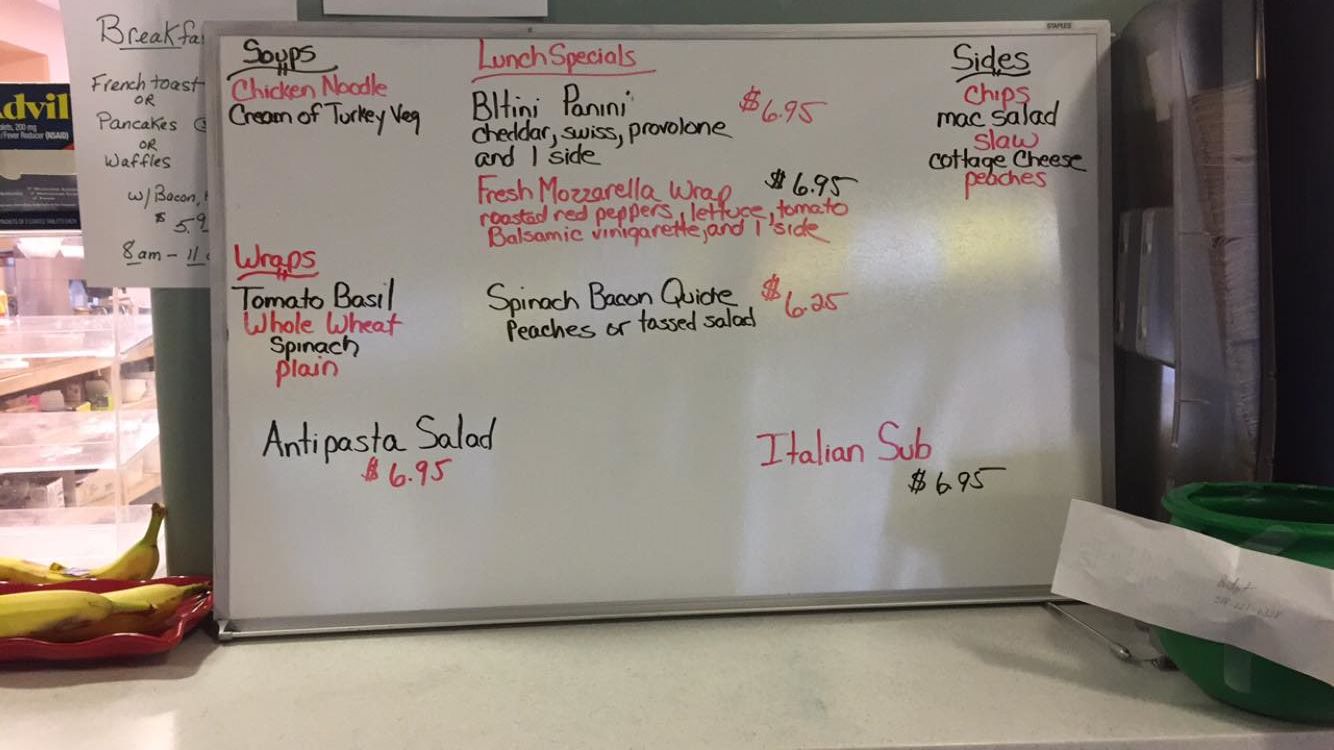 Breakfa
French toast
OR
Pancakes
OR
Waffles
w/ Bacon,
$ 5.9
8am - 11
dvil
STAPLES
Soups
Chicken Noodle
Cream of Turkey Veg
Wraps
Tomato Basil
Whole Wheat
Spinach
plain
Lunch Specials
Bltini Panini $6.95
cheddar, swiss, provolone
and 1 side
Fresh Mozzarella Wrap $6.95
roasted red peppers, lettuce, tomato
Balsamic vinigarette, and 1 side
Spinach Bacon Quiche $6.25
Peaches or tossed salad
Sides
Chips
mac salad
slaw
cottage Cheese
peaches
Antipasta Salad
$6.95
Italian Sub
$6.95